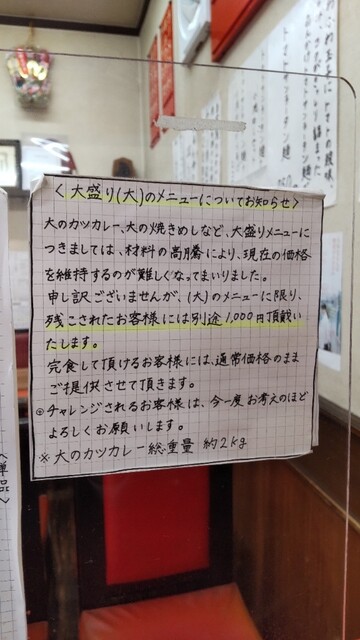 <大盛り(大)のメニューについてお知らせ>
大のカツカレー、大の焼きめしなど、大盛りメニューに
つきましては、材料の高騰により、現在の価格
を維持するのが難しくなってまいりました。
申し訳ございませんが、(大)のメニューに限り、
残こされたお客様には別途1,000円頂戴い
たします。
完食して頂けるお客様には、通常価格のまま
ご提供させて頂きます。
◎チャレンジされるお客様は、今一度お考えのほど
よろしくお願いします。
※大のカツカレー総重量 約2kg